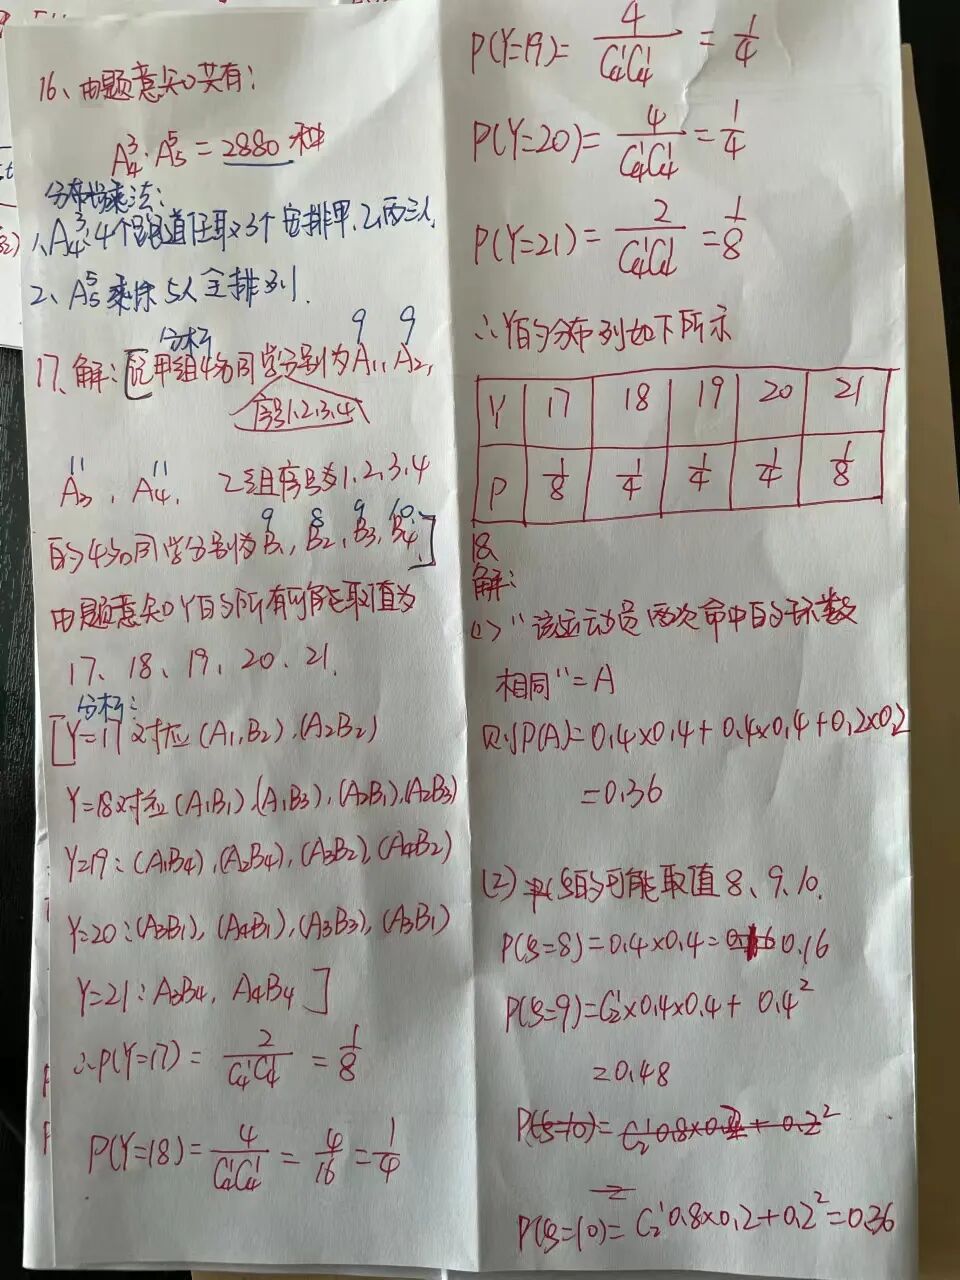 16、由题意知共有:
A₄³·A₅⁵=2880种
分布乘法:
1、A₄³:4个跑道任取3个安排甲、乙、丙三人,
2、A₅⁵乘余5人全排列.
分析
9 9
17、解:[设甲组4名同学分别为A₁,A₂,
序号1.2.3.4
11 11
A₃,A₄, 乙组序号为1、2、3、4
9 8 9 10
的4名同学分别为B₁,B₂,B₃,B₄.]
由题意知Y的所有可能取值为
17、18、19、20、21.
分析:
[Y=17对应(A₁,B₂),(A₂B₂)
Y=18对应(A₁B₁),(A₁B₃),(A₂B₁),(A₂B₃)
Y=19:(A₁B₄),(A₂B₄),(A₃B₂),(A₄B₂)
Y=20:(A₃B₁),(A₄B₁),(A₃B₃),(A₃B₁)
Y=21:A₃B₄,A₄B₄]
∴P(Y=17)=2/C₄¹C₄¹=1/8
P(Y=18)=4/C₄¹C₄¹=4/16=1/4
P(Y=19)=4/C₄¹C₄¹=1/4
P(Y=20)=4/C₄¹C₄¹=1/4
P(Y=21)=2/C₄¹C₄¹=1/8
∴Y的分布列如下所示
Y 17 18 19 20 21
P 1/8 1/4 1/4 1/4 1/8
18
解:
(1)"该运动员两次命中的环数
相同"=A
则P(A)=0.4×0.4+0.4×0.4+0.2×0.2
=0.36
(2)ξ的可能取值8、9、10.
P(ξ=8)=0.4×0.4=0.16
P(ξ=9)=C₂¹×0.4×0.4+0.4²
=0.48
P(ξ=10)=C₂¹0.8×0.2+0.2²
=
P(ξ=10)=C₂¹0.8×0.2+0.2²=0.36